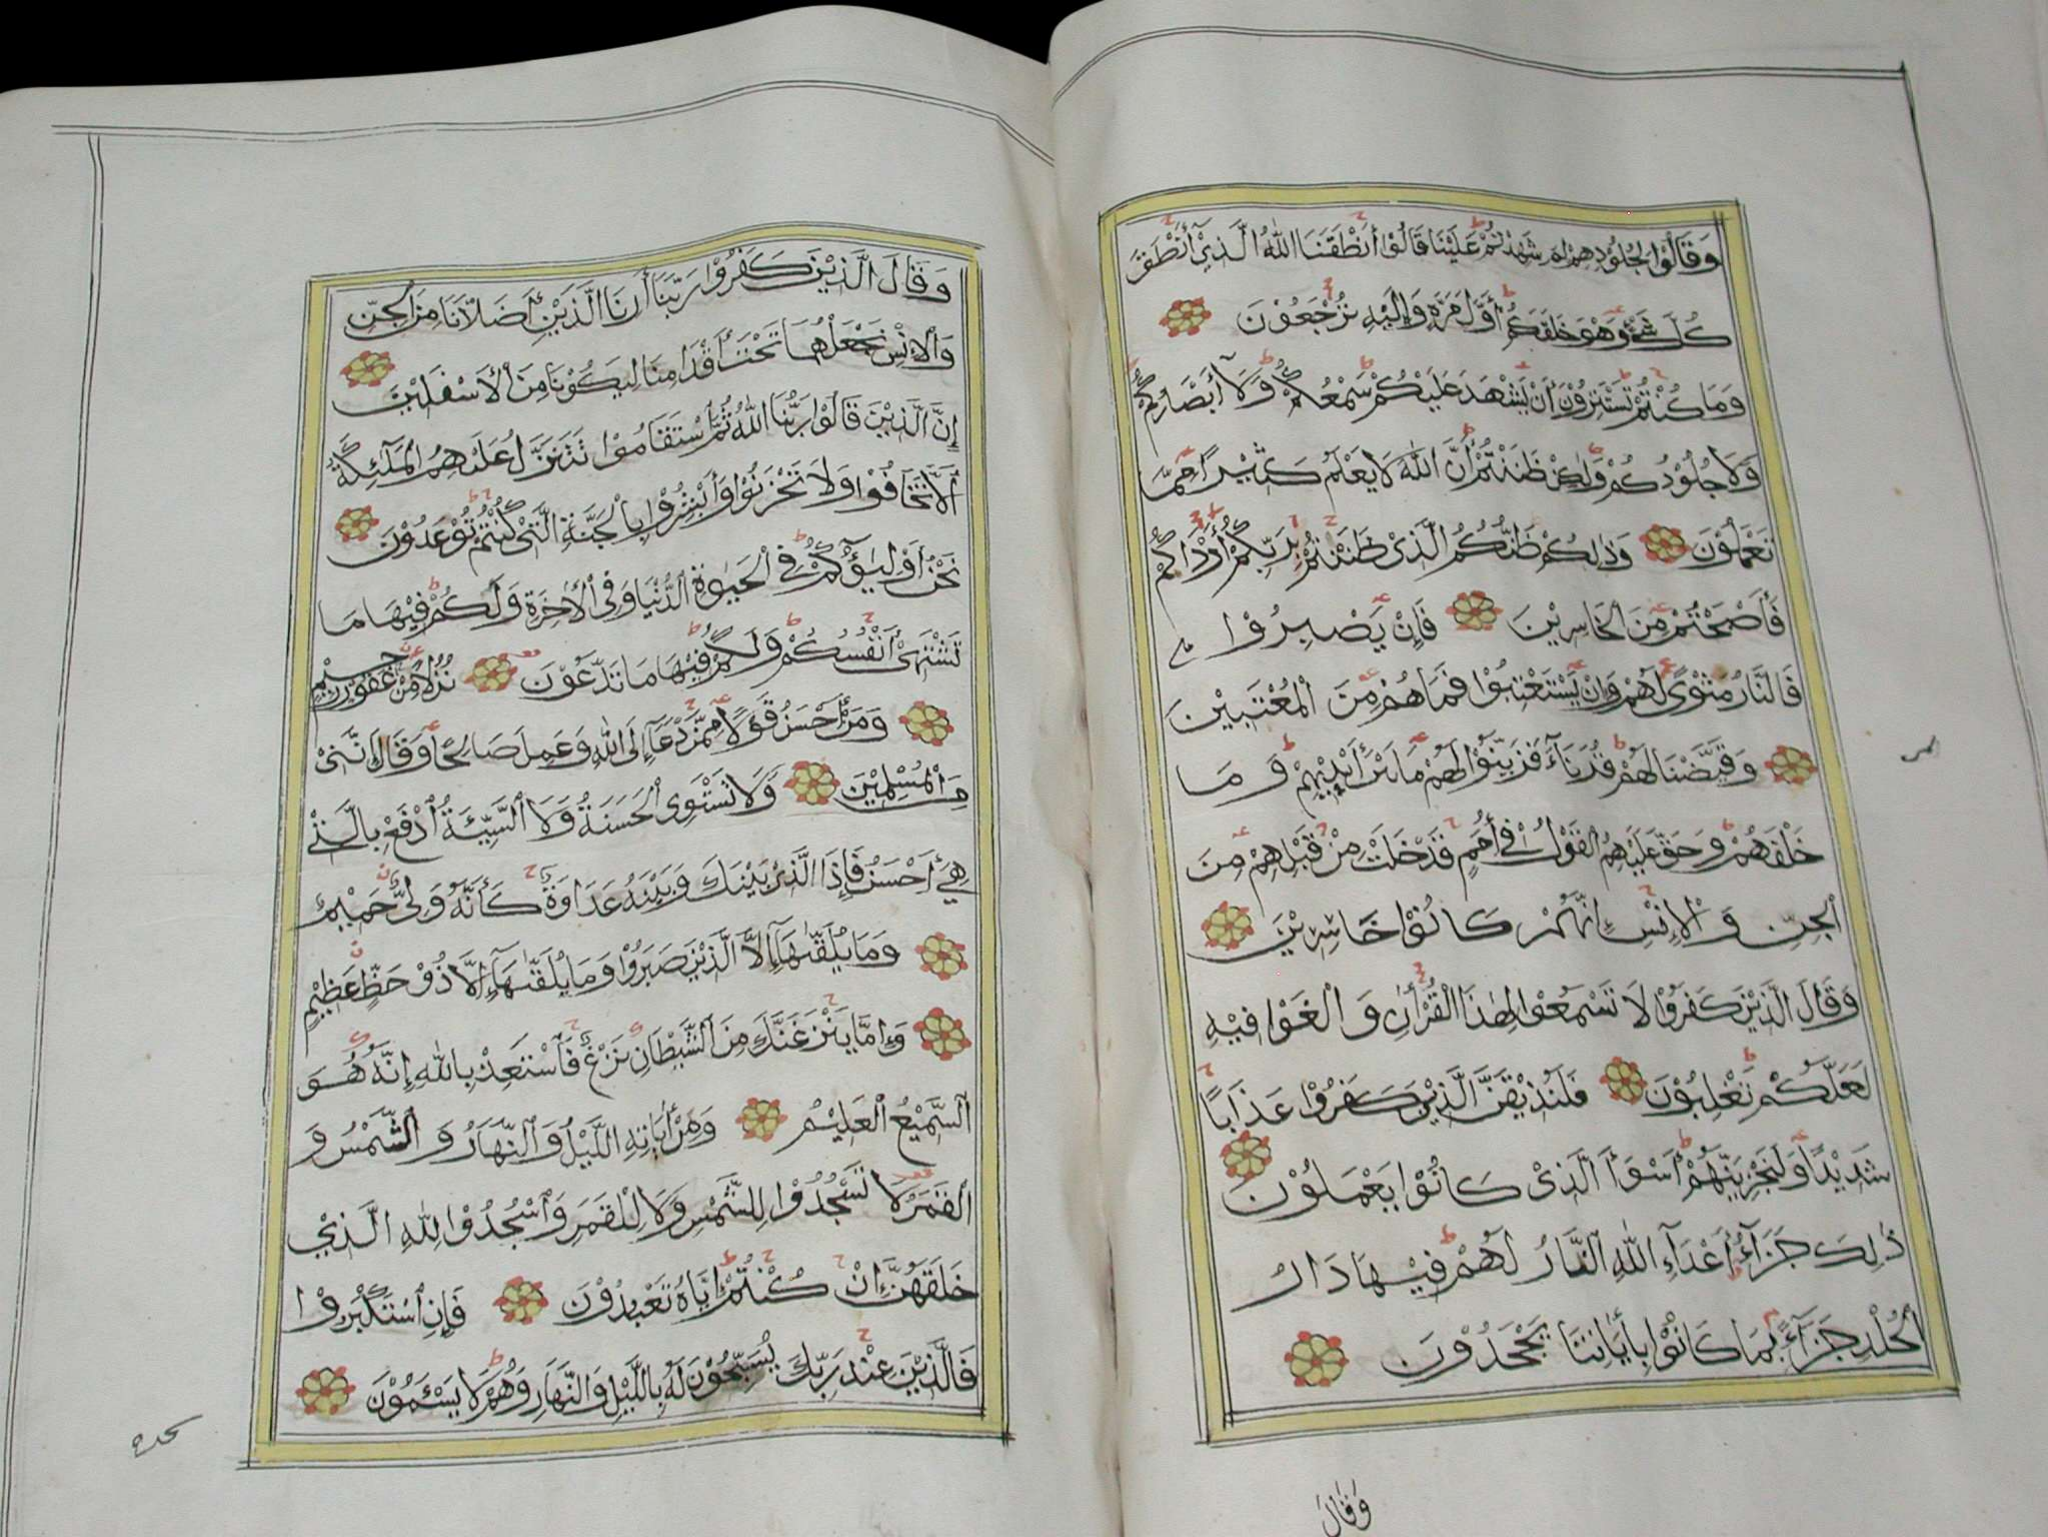 وَقَالُوْا لِجُلُوْدِهِمْ لِمَ شَهِدْتُمْ عَلَيْنَا قَالُوْا أَنْطَقَنَا اللّٰهُ الَّذِيْ أَنْطَقَ
كُلَّ شَیْءٍ وَهُوَ خَلَقَكُمْ أَوَّلَ مَرَّةٍ وَإِلَيْهِ تُرْجَعُوْنَ
وَمَا كُنْتُمْ تَسْتَتِرُوْنَ أَنْ يَشْهَدَ عَلَيْكُمْ سَمْعُكُمْ وَلَآ أَبْصَارُكُمْ
وَلَا جُلُوْدُكُمْ وَلٰكِنْ ظَنَنْتُمْ أَنَّ اللّٰهَ لَا يَعْلَمُ كَثِيْرًا مِمَّا
تَعْمَلُوْنَ وَذٰلِكُمْ ظَنُّكُمُ الَّذِیْ ظَنَنْتُمْ بِرَبِّكُمْ أَرْدَاكُمْ
فَأَصْبَحْتُمْ مِنَ الْخَاسِرِيْنَ فَإِنْ يَصْبِرُوْا
فَالنَّارُ مَثْوًی لَهُمْ وَإِنْ يَسْتَعْتِبُوْا فَمَا هُمْ مِنَ الْمُعْتَبِيْنَ
وَقَيَّضْنَا لَهُمْ قُرَنَآءَ فَزَيَّنُوْا لَهُمْ مَا بَيْنَ أَيْدِيْهِمْ وَمَا
خَلْفَهُمْ وَحَقَّ عَلَيْهِمُ الْقَوْلُ فِیْ أُمَمٍ قَدْ خَلَتْ مِنْ قَبْلِهِمْ مِنَ
الْجِنِّ وَالْاِنْسِ اِنَّهُمْ كَانُوْا خَاسِرِيْنَ
وَقَالَ الَّذِيْنَ كَفَرُوْا لَا تَسْمَعُوْا لِهٰذَا الْقُرْأٰنِ وَالْغَوْا فِيْهِ
لَعَلَّكُمْ تَغْلِبُوْنَ فَلَنُذِيْقَنَّ الَّذِيْنَ كَفَرُوْا عَذَابًا
شَدِيْدًا وَلَنَجْزِيَنَّهُمْ أَسْوَأَ الَّذِیْ كَانُوْا يَعْمَلُوْنَ
ذٰلِكَ جَزَآءُ أَعْدَآءِ اللّٰهِ النَّارُ لَهُمْ فِيْهَا دَارُ
الْخُلْدِ جَزَآءً بِمَا كَانُوْا بِأٰيَاتِنَا يَجْحَدُوْنَ
وَقَالَ
وَقَالَ الَّذِيْنَ كَفَرُوْا رَبَّنَا أَرِنَا الَّذَيْنِ أَضَلَّانَا مِنَ الْجِنِّ
وَالْاِنْسِ نَجْعَلْهُمَا تَحْتَ أَقْدَامِنَا لِيَكُوْنَا مِنَ الْأَسْفَلِيْنَ
إِنَّ الَّذِيْنَ قَالُوْا رَبُّنَا اللّٰهُ ثُمَّ اسْتَقَامُوْا تَتَنَزَّلُ عَلَيْهِمُ الْمَلَآئِكَةُ
أَلَّا تَخَافُوْا وَلَا تَحْزَنُوْا وَأَبْشِرُوْا بِالْجَنَّةِ الَّتِیْ كُنْتُمْ تُوْعَدُوْنَ
نَحْنُ أَوْلِيَؤُكُمْ فِی الْحَيٰوةِ الدُّنْيَا وَفِی الْأٰخِرَةِ وَلَكُمْ فِيْهَا مَا
تَشْتَهِیْ أَنْفُسُكُمْ وَلَكُمْ فِيْهَا مَا تَدَّعُوْنَ نُزُلًا مِنْ غَفُوْرٍ رَحِيْمٍ
وَمَنْ أَحْسَنُ قَوْلًا مِمَّنْ دَعَآ إِلَی اللّٰهِ وَعَمِلَ صَالِحًا وَقَالَ إِنَّنِیْ
مِنَ الْمُسْلِمِيْنَ وَلَا تَسْتَوِی الْحَسَنَةُ وَلَا السَّيِّئَةُ اِدْفَعْ بِالَّتِیْ
هِیَ أَحْسَنُ فَإِذَا الَّذِیْ بَيْنَكَ وَبَيْنَهُ عَدَاوَةٌ كَأَنَّهُ وَلِیٌّ حَمِيْمٌ
وَمَا يُلَقّٰىهَآ اِلَّا الَّذِيْنَ صَبَرُوْا وَمَا يُلَقّٰىهَآ إِلَّا ذُوْ حَظٍّ عَظِيْمٍ
وَإِمَّا يَنْزَغَنَّكَ مِنَ الشَّيْطَانِ نَزْغٌ فَاسْتَعِذْ بِاللّٰهِ إِنَّهُ هُوَ
السَّمِيْعُ الْعَلِيْمُ وَمِنْ أٰيَاتِهِ اللَّيْلُ وَالنَّهَارُ وَالشَّمْسُ وَ
الْقَمَرُ لَا تَسْجُدُوْا لِلشَّمْسِ وَلَا لِلْقَمَرِ وَاسْجُدُوْا لِلّٰهِ الَّذِيْ
خَلَقَهُنَّ اِنْ كُنْتُمْ اِيَّاهُ تَعْبُدُوْنَ فَإِنِ اسْتَكْبَرُوْا
فَالَّذِيْنَ عِنْدَ رَبِّكَ يُسَبِّحُوْنَ لَهُ بِاللَّيْلِ وَالنَّهَارِ وَهُمْ لَا يَسْئَمُوْنَ
سجده